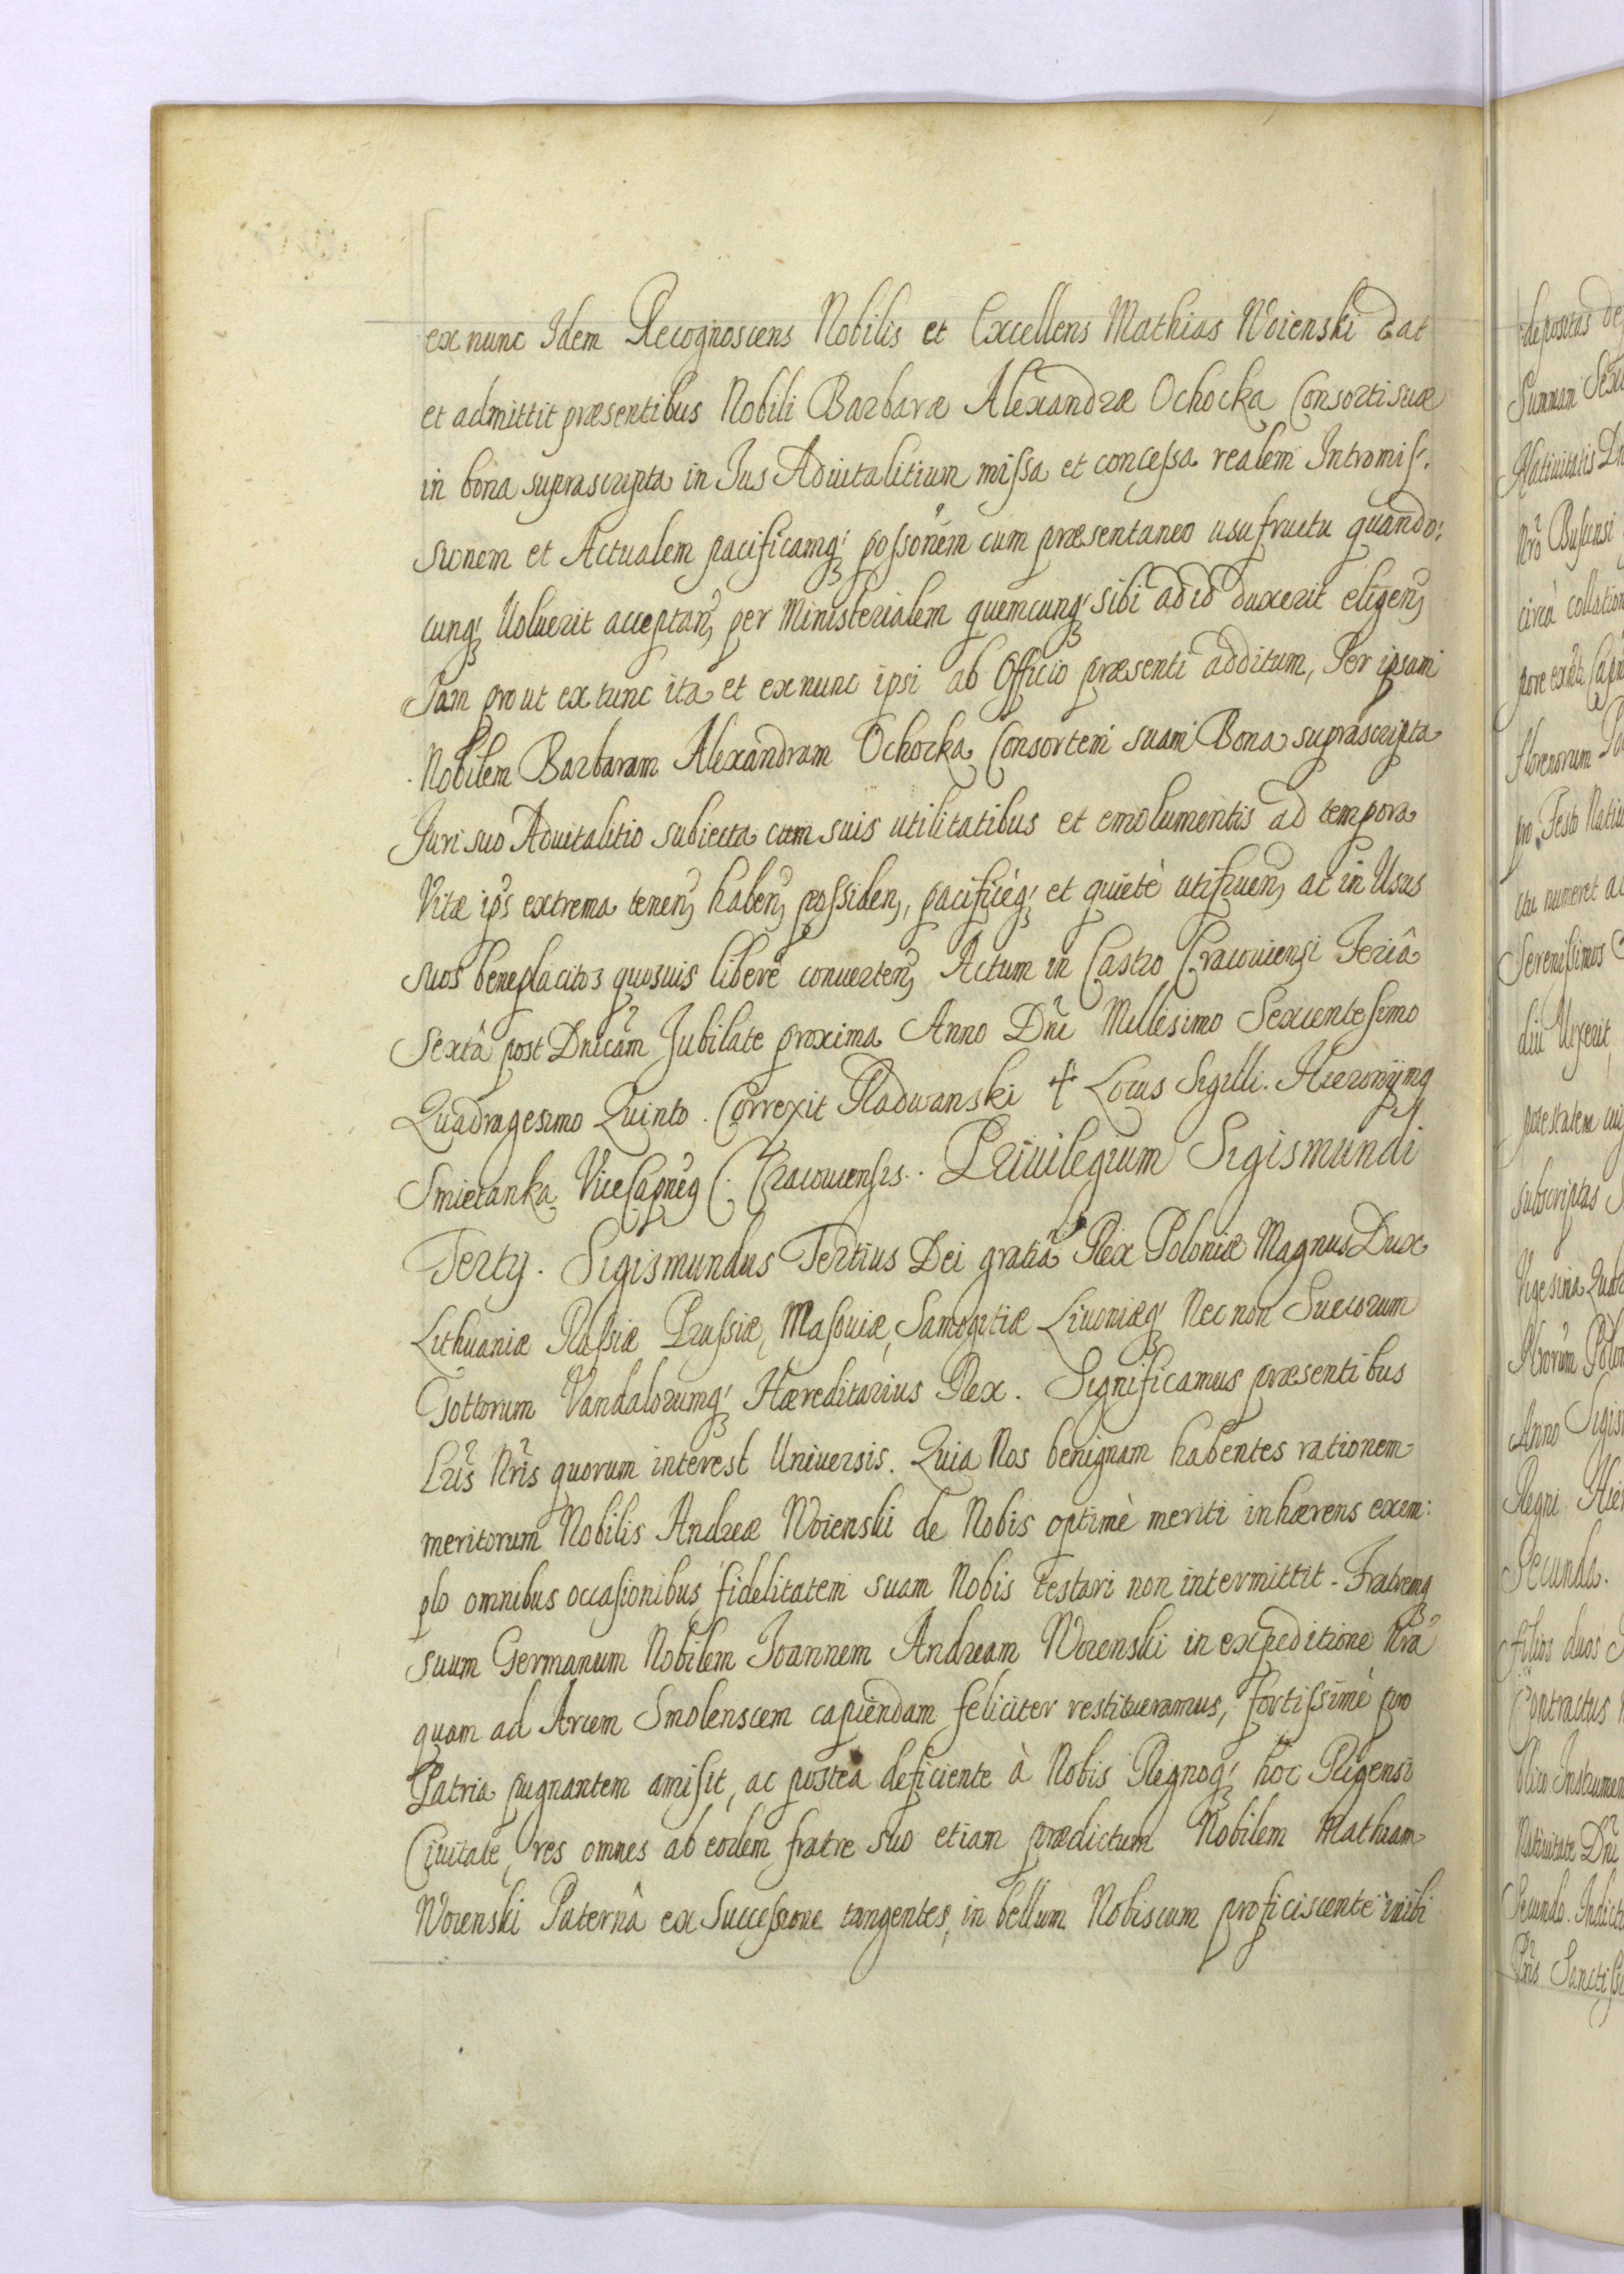 ex nunc Idem Recognoscens Nobilis et Excellens Mathias Woienski dat
et admittit præsentibus Nobili Barbaræ Alexandræ Ochocka Consorti suæ
in bona suprascripta in Jus Aduitalitium missa et concessa realem Intromis:
sionem et Actualem pacificamq; possõnem cum præsentaneo usufructu quando:
cunq; Voluerit acceptan, per Ministerialem quemcunq; sibi ad id duxerit eligen,
Jam prout ex tunc ita et ex nunc ipsi ab Officio præsenti additum, Per ipsam
Nobilem Barbaram Alexandram Ochocka Consortem suam Bona suprascripta
Juri suo Aduitalitio subiecta cum suis utilitatibus et emolumentis ad tempora
Vitæ ips extrema tenen, haben, possiden, pacificèq; et quietè utifruen, ac in Usus
suos beneplacitos quosuis liberè conuerten, Actum in Castro Cracouiensi Feriâ
Sextâ post Dnicam Jubilate proxima Anno Dni Millesimo Sexcentesimo
Quadragesimo Quinto. Correxit Radwanski † Locus Sigilli. Hieronijmq
Smietanka ViceCapneq C: Cracouiensis. Priuilegium Sigismundi
Tertij. Sigismundus Tertius Dei gratiâ Rex Poloniæ Magnus Dux
Lithuaniæ Russiæ Prussiæ, Masouiæ, Samogitiæ Liuoniæq; Nec non Suecorum
Gottorum Vandalorumq; Hæreditarius Rex. Significamus præsentibus
Lris Nris quorum interest Uniuersis. Quia Nos benignam habentes rationem
meritorum Nobilis Andreæ Woienski de Nobis optimè meriti inhærens exem:
plo omnibus occasionibus, fidelitatem suam Nobis testari non intermittit - Fratremq;
suum Germanum Nobilem Joannem Andream Woienski in expeditione Nra
quam ad Arcem Smolenscem capiendam feliciter restitueramus, fortissimè pro
Patria pugnantem amisit, ac postea deficiente à Nobis Regnoq; hoc Rigensi
Ciuitate, res omnes ab eodem fratre suo etiam prædictum Nobilem Mathiam
Woienski Paternâ ex Successione tangentes, in bellum Nobiscum proficiscente inibi
depositas
Summam
Natiuitatis
Nro
circa collation
pore
florenorum
pro Festo
numeret
Serenissimos
diu Vixerit
potestatem
subscriptas
Vigesima
Anno
Regni
Secunda.
filios duos
Contractus
Natiuitate Dni
Secundo. Indict
Sanctiss